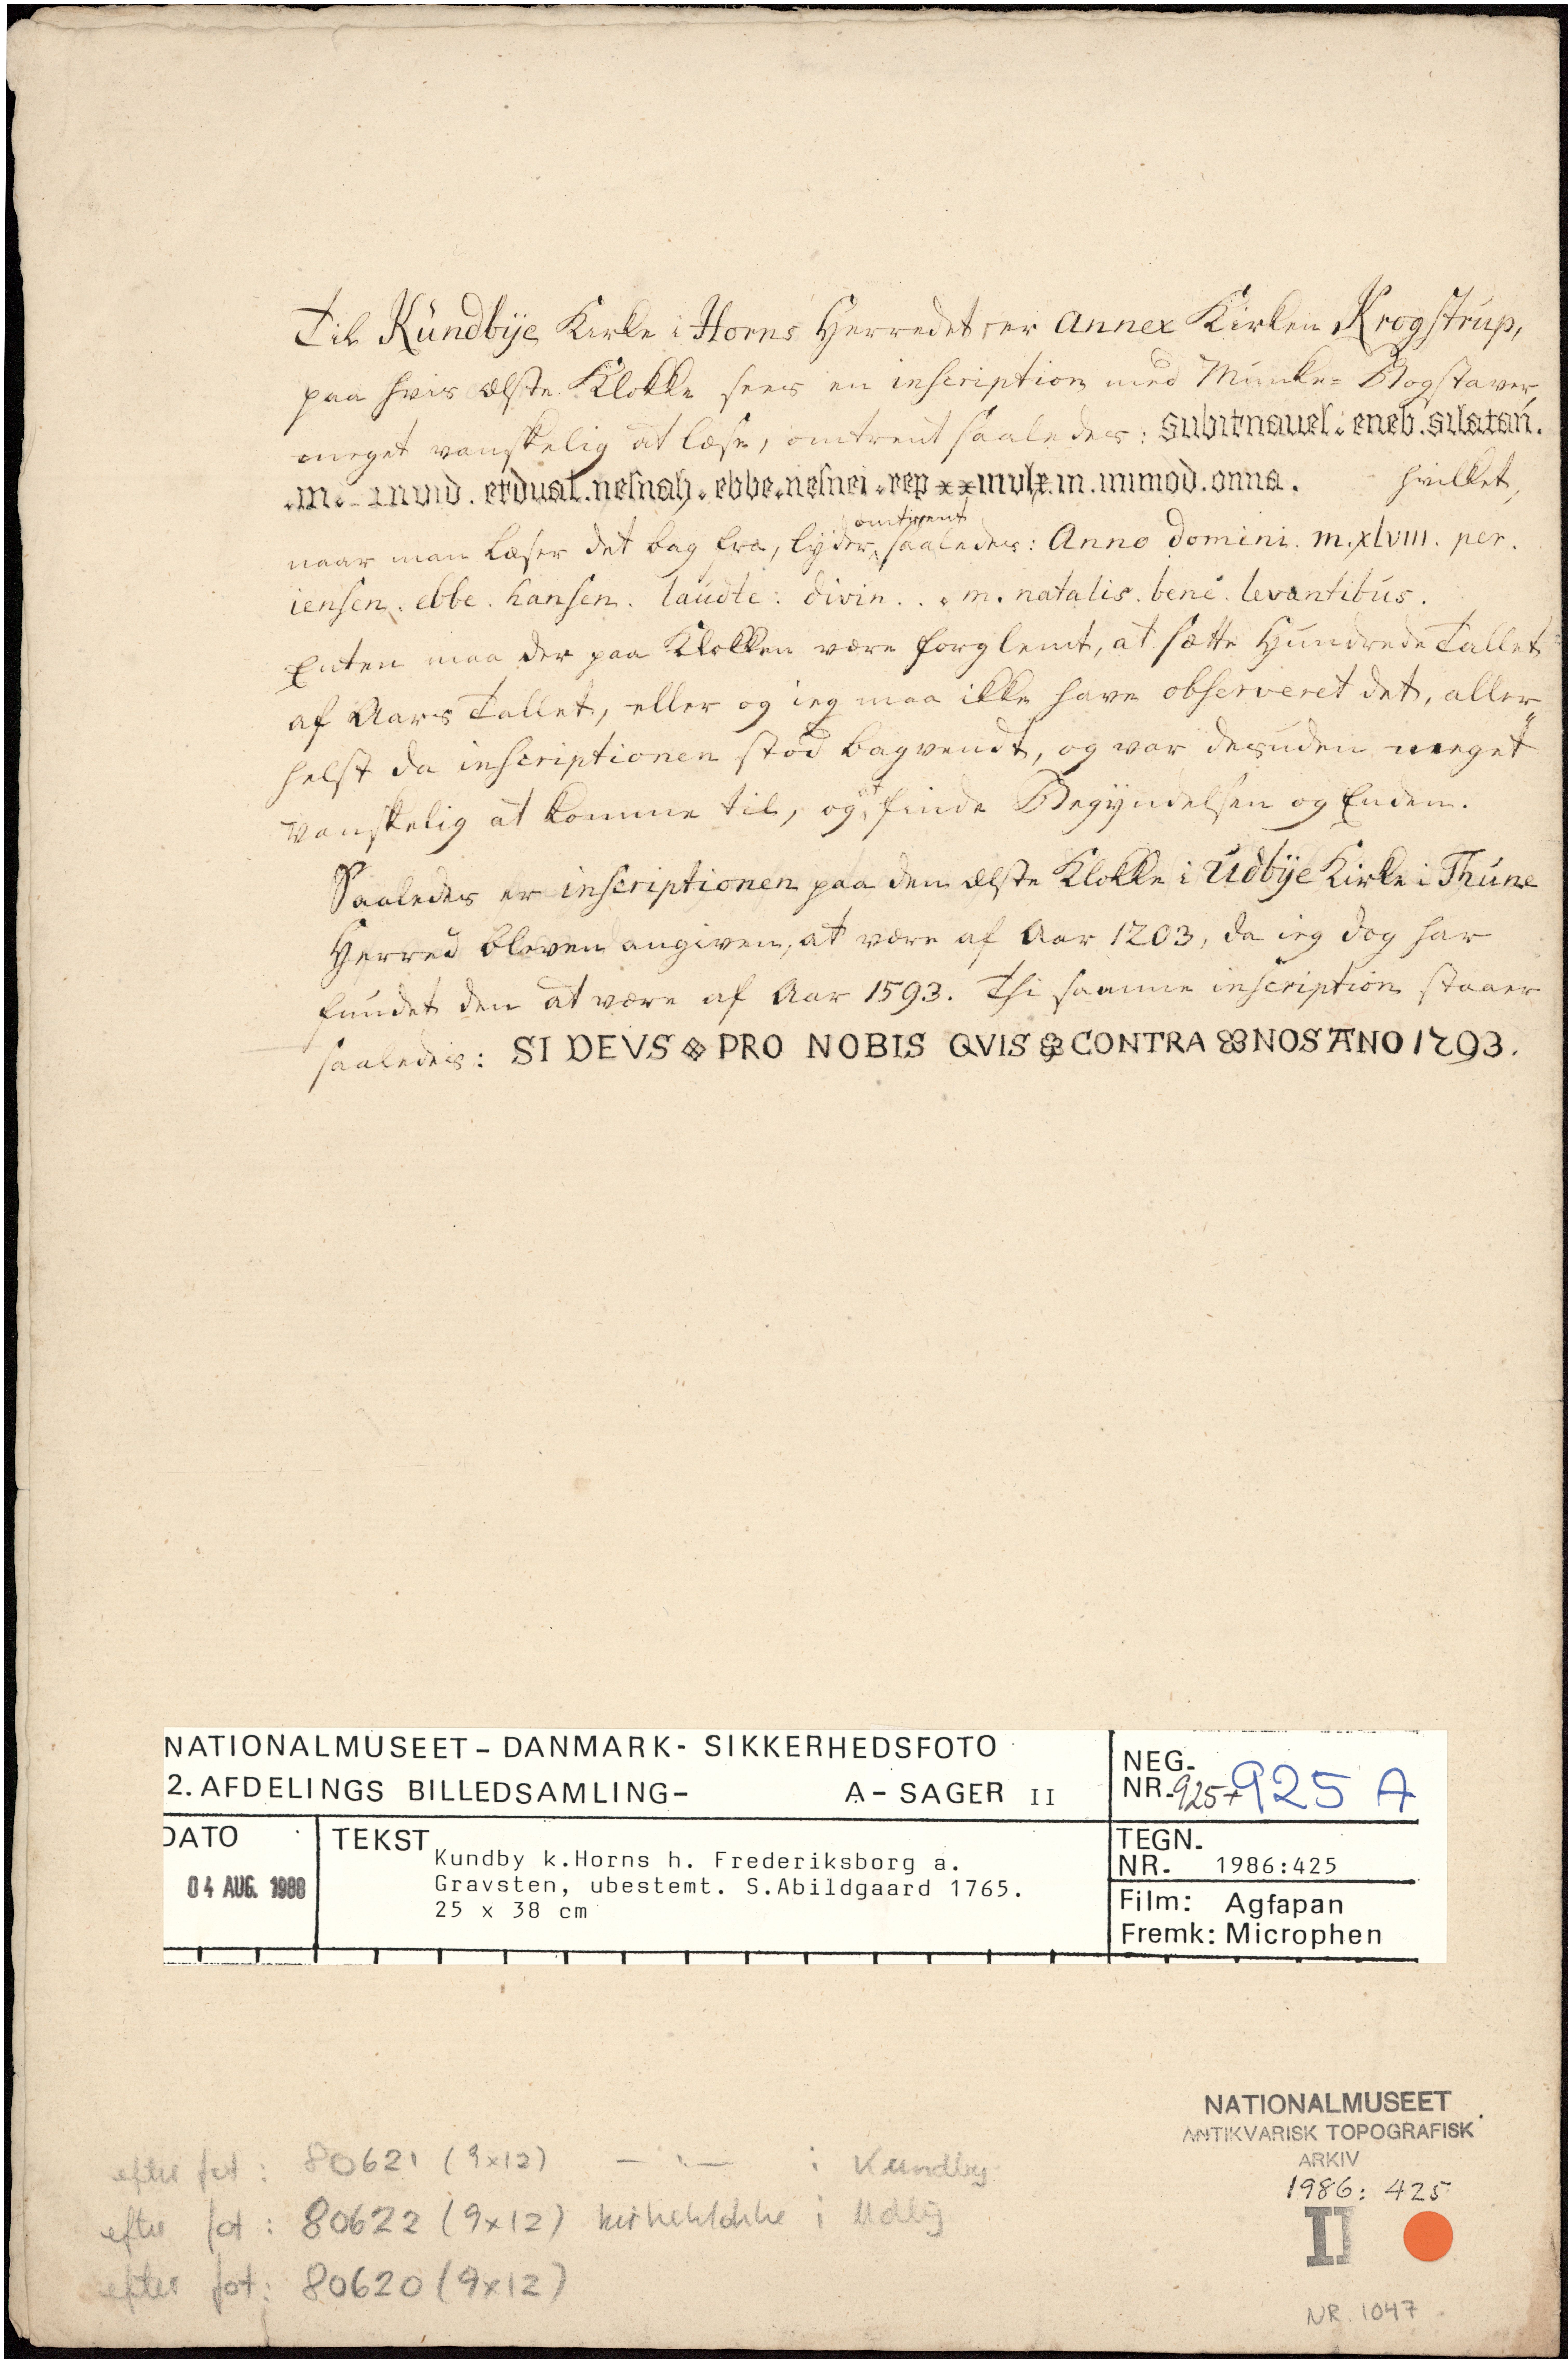 Til Kündbÿe Kirke i Horns Herredet, er Annex Kirken Krogstrup,
paa hvis ælste Klokke sees en inscription med Munke= Bogstaver,
meget vanskelig at læse, omtrent saaledes: subitnauel : eneb . silatan .
. m . . inuid . etdual . nesnah . ebbe . nesnei . rep xx iiivlx . m . inimod . onna . hvilket,
omtrent
naar man læser det bag fra, lyder, saaledes: Anno domini. m.xlvııı. per.
iensen. ebbe. hansen. laudte: divin. . . m. natalis. bene. levantibus.
Enten maa der paa Klokken være forglemt, at sætte Hundrede Tallet
af Aars Tallet, eller og ieg maa ikke have observeret det, aller„
helst da inscriptionen stod bagvendt, og var desuden meget
vanskelig at komme til, og at finde Begyndelsen og Enden.
Saaledes er inscriptionen paa den ælste Klokke i Udbÿe Kirke i Thune
Herred bleven angiven, at være af Aar 1203, da ieg dog har
fundet den at være af Aar 1593. Thi samme inscription staaer
saaledes: SI DEVS PRO NOBIS QVIS CONTRA NOS ANO 1593.
NATIONALMUSEET – DANMARK - SIKKERHEDSFOTO
2. AFDELINGS BILLEDSAMLING – A – SAGER II
NEG.
NR. 925+925 A
DATO
04 AUG. 1988
TEKST
Kundby k.Horns h. Frederiksborg a.
Gravsten, ubestemt. S.Abildgaard 1765.
25 x 38 cm
TEGN.
NR. 1986:425
Film: Agfapan
Fremk: Microphen
NATIONALMUSEET
ANTIKVARISK TOPOGRAFISK
ARKIV
1986: 425
II
NR. 1047
efter fot: 80621 (9x12) — " — i Kundby
efter fot: 80622 (9x12) kirkeklokke i Udby
efter fot: 80620 (9x12)